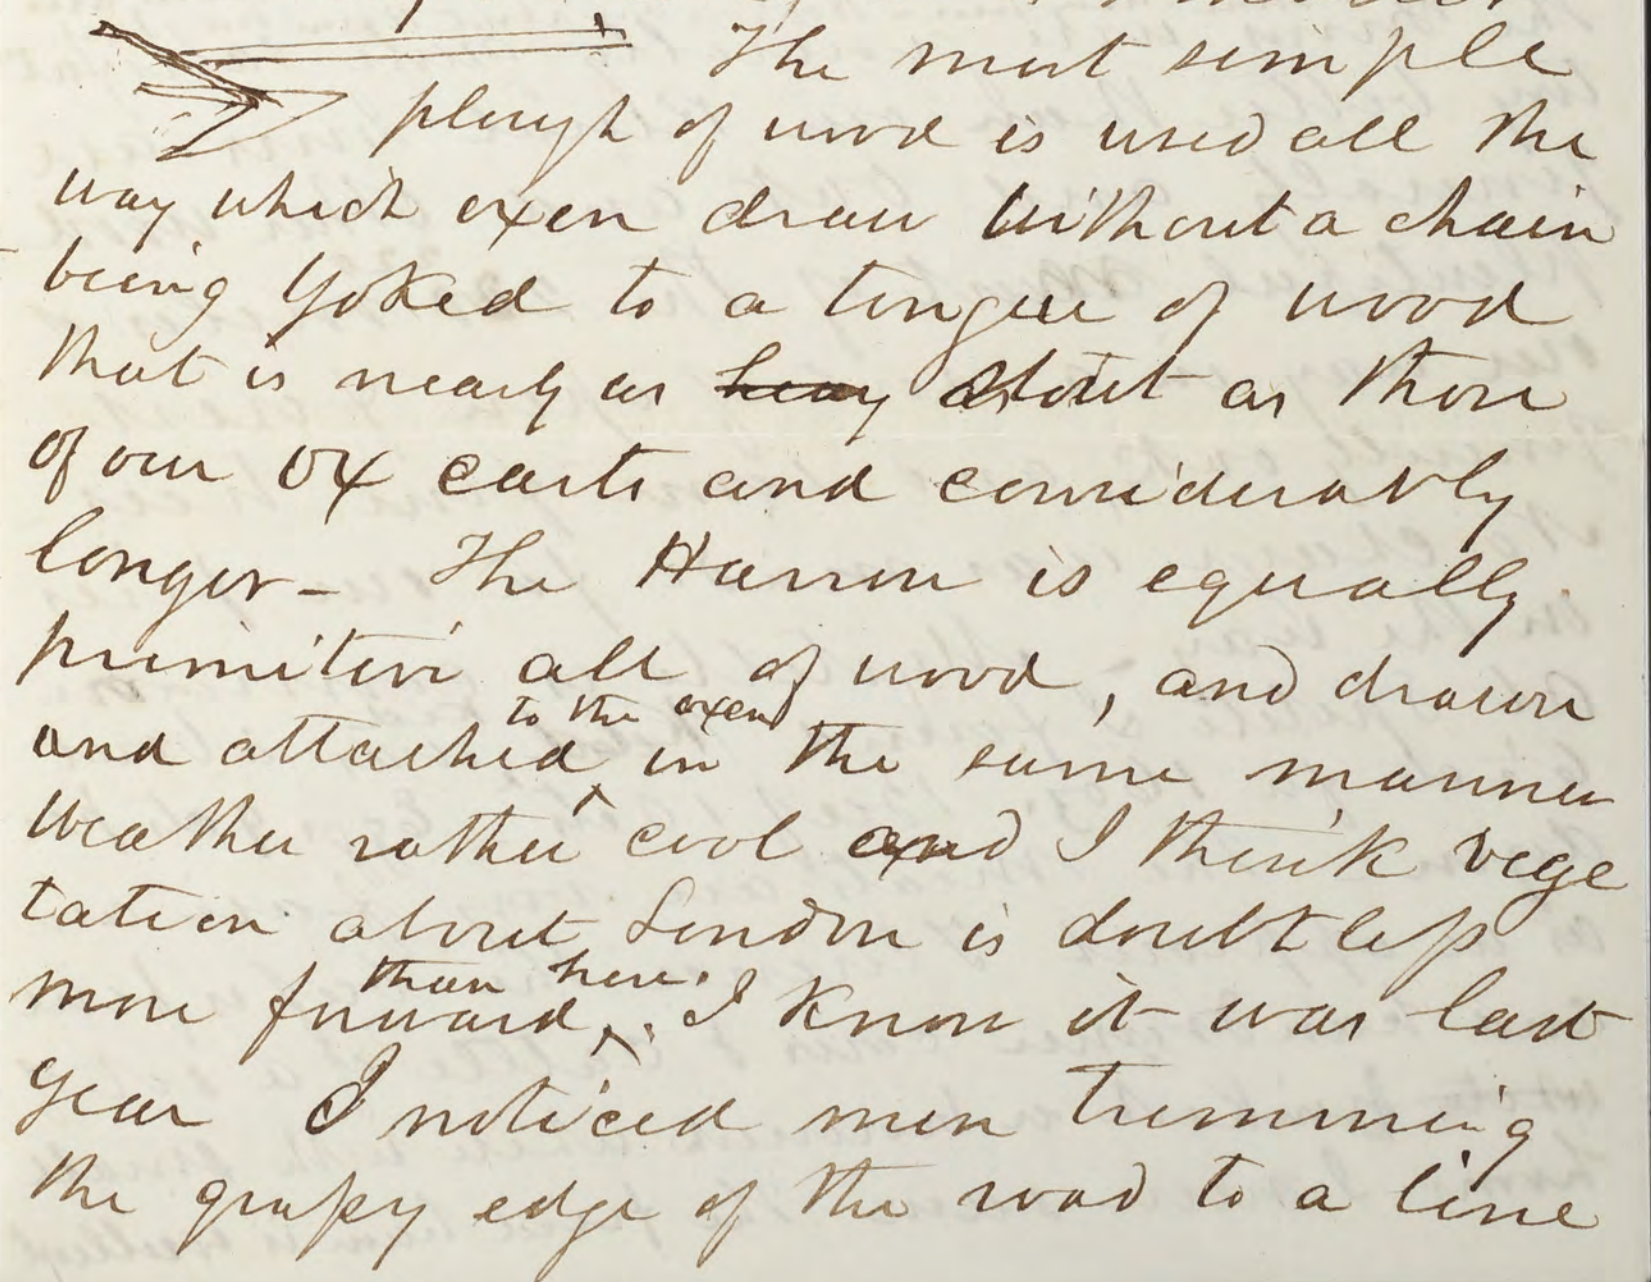 The most simple
plough of wood is used all the
way which oxen draw without a chain
being yoked to a tongue of wood
that is nearly as heavy stout as those
of our ox carts and considerably
longer - The Harrow is equally
primitive all of wood, and drawn
to the oxen
and attached ^ in the same manner
Weather rather cool and I think vege
tation about London is doubtless
than here.
more forward, ^. I know it was last
year I noticed men trimming
the grassy edge of the road to a line